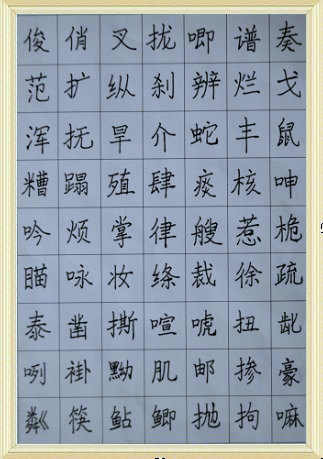 俊俏叉拢唧谱奏
范扩纵刹辨烂戈
浑抚旱介蛇丰鼠
糟蹋殖肆痰核呻
吟烦掌律艘惹桅
瞄咏妆绦裁徐疏
泰凿撕喧唬扭龀
咧褂黝肌邮掺豪
粼筷鲇鲫抛拘嘛